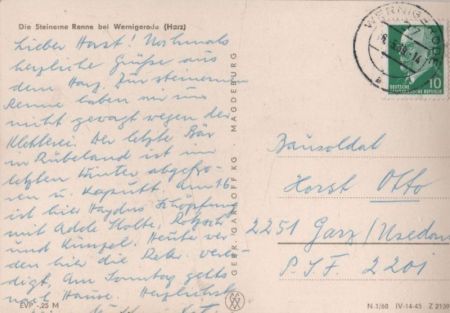 Die Steinerne Renne bei Wernigerode (Harz)
Lieber Horst! Nochmals
herzliche Grüße aus
dem Harz. Zur steinernen
Renne haben wir uns
nicht gewagt wegen der
Kletterei. Der letzte Bär
in Rübeland ist im
letzten Winter abgefro-
ren u. kaputt. Am 16.
ist hier Haydns Schöpfung
mit Adele Stolte, Rotzsch
und Kunzel. Heute wer-
den hier die Rekr. verei-
digt. Am Sonntag gehts
nach Hause. Herzlichst
GEBR. GARLOFF KG · MAGDEBURG
WERNIGERODE
DEUTSCHE
DEMOKRATISCHE REPUBLIK
10
Bausoldat
Horst Otto
2251 Garz/Usedom
P.S.F. 2201
EVP -,25 M
N 1/60 IV-14-45 Z 2139